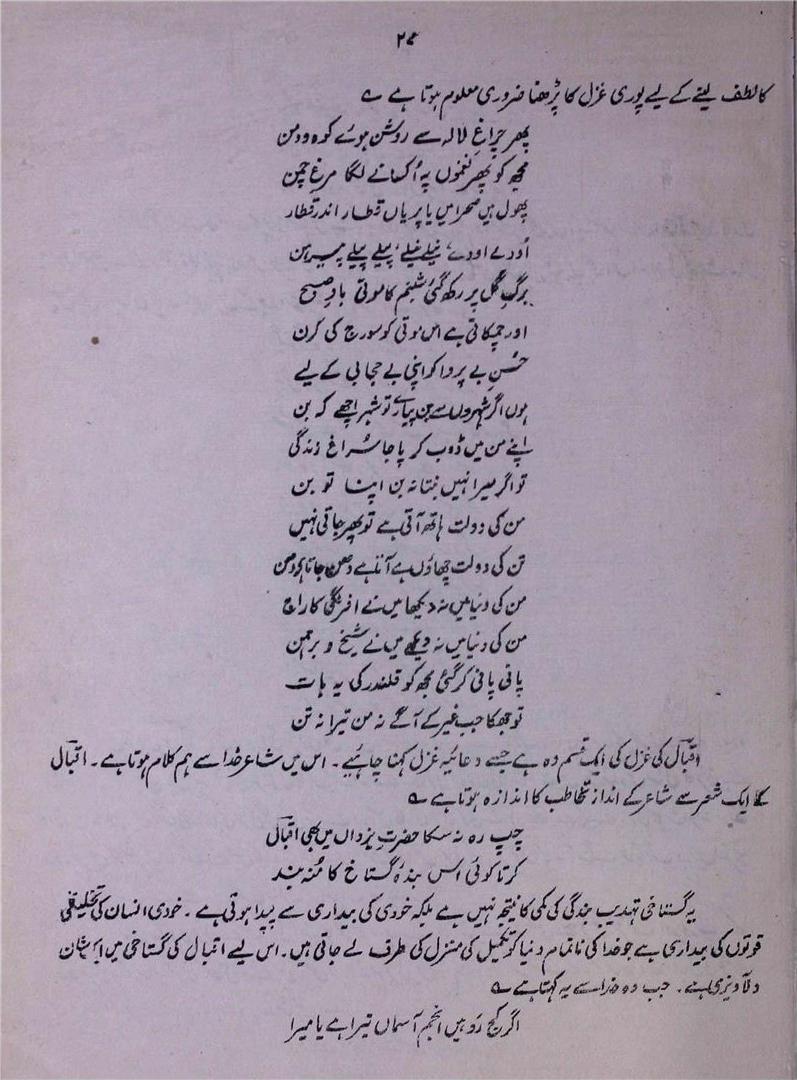 ۲۷
کا لطف لینے کے لیے پوری غزل کا پڑھنا ضروری معلوم ہوتا ہے ؎
پھر چراغِ لالہ سے روشن ہوئے کوہ و دمن
مجھ کو پھر نغموں پہ اُکسانے لگا مرغِ چمن
پھول ہیں صحرا میں یا پریاں قطار اندر قطار
اُودے اودے، نیلے نیلے، پیلے پیلے پیرہن
برگِ گُل پر رکھ گئی شبنم کا موتی بادِ صبح
اور چمکاتی ہے اس موتی کو سورج کی کرن
حُسنِ بے پروا کو اپنی بے حجابی کے لیے
ہوں اگر شہروں سے بن پیارے تو شہر اچھے کہ بن
اپنے من میں ڈوب کر پا جا سُراغِ زندگی
تو اگر میرا نہیں بنتا نہ بن اپنا تو بن
من کی دولت ہاتھ آتی ہے تو پھر جاتی نہیں
تن کی دولت چھاؤں ہے آتا ہے دھن جاتا ہے دھن
من کی دنیا میں نہ دیکھا میں نے افرنگی کا راج
من کی دنیا میں نہ دیکھے میں نے شیخ و برہمن
پانی پانی کر گئی مجھ کو قلندر کی یہ بات
تو جھکا جب غیر کے آگے نہ من تیرا نہ تن
اقبال کی غزل کی ایک قسم وہ ہے جسے دعائیہ غزل کہنا چاہئیے۔ اس میں شاعر خدا سے ہم کلام ہوتا ہے۔ اقبال
کے ایک شعر سے شاعر کے اندازِ تخاطب کا اندازہ ہوتا ہے ؎
چپ رہ نہ سکا حضرتِ یزداں میں بھی اقبال
کرتا کوئی اس بندۂ گستاخ کا مُنہ بند
یہ گستاخی تہذیبِ بندگی کی کمی کا نتیجہ نہیں ہے بلکہ خودی کی بیداری سے پیدا ہوتی ہے۔ خودی انسان کی تخلیقی
قوتوں کی بیداری ہے جو خدا کی ناتمام دنیا کو تکمیل کی منزل کی طرف لے جاتی ہیں۔ اس لیے اقبال کی گستاخی میں ایک شان
دلآویزی ہے۔ جب وہ خدا سے یہ کہتا ہے ؎
اگر کج رَو ہیں انجم آسماں تیرا ہے یا میرا